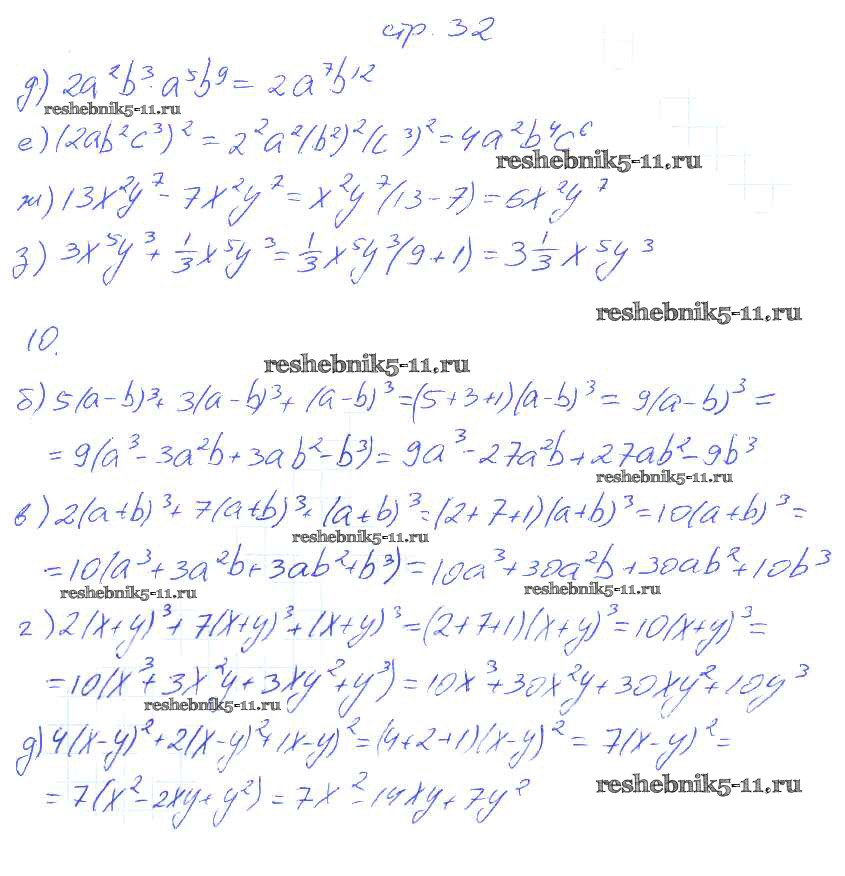 стр. 32
д) 2a²b³·a⁵b⁹ = 2a⁷b¹²
reshebnik5-11.ru
е) (2ab²c³)² = 2²a²(b²)²(c³)² = 4a²b⁴c⁶
reshebnik5-11.ru
ж) 13x²y⁷ - 7x²y⁷ = x²y⁷(13-7) = 6x²y⁷
з) 3x⁵y³ + 1/3 x⁵y³ = 1/3 x⁵y³(9+1) = 3 1/3 x⁵y³
reshebnik5-11.ru
10.
reshebnik5-11.ru
б) 5(a-b)³ + 3(a-b)³ + (a-b)³ = (5+3+1)(a-b)³ = 9(a-b)³ =
= 9(a³ - 3a²b + 3ab² - b³) = 9a³ - 27a²b + 27ab² - 9b³
reshebnik5-11.ru
в) 2(a+b)³ + 7(a+b)³ + (a+b)³ = (2+7+1)(a+b)³ = 10(a+b)³ =
reshebnik5-11.ru
= 10(a³ + 3a²b + 3ab² + b³) = 10a³ + 30a²b + 30ab² + 10b³
reshebnik5-11.ru reshebnik5-11.ru
г) 2(x+y)³ + 7(x+y)³ + (x+y)³ = (2+7+1)(x+y)³ = 10(x+y)³ =
= 10(x³ + 3x²y + 3xy² + y³) = 10x³ + 30x²y + 30xy² + 10y³
reshebnik5-11.ru
д) 4(x-y)² + 2(x-y)² + (x-y)² = (4+2+1)(x-y)² = 7(x-y)² =
= 7(x² - 2xy + y²) = 7x² - 14xy + 7y²
reshebnik5-11.ru